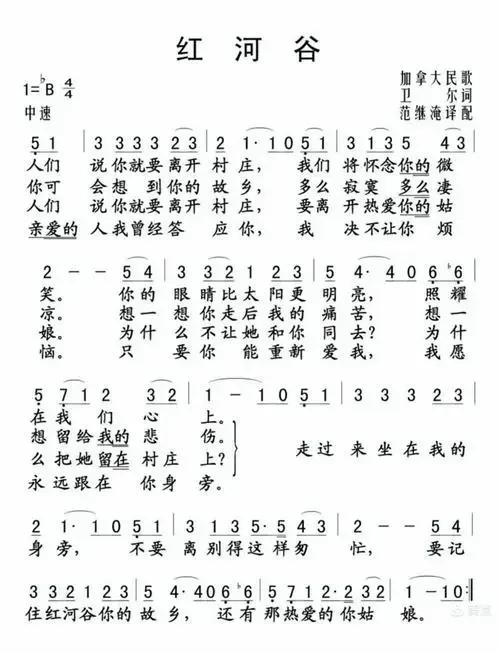 红河谷
加拿大民歌
1=♭B 4/4 卫尔词
中速 范继淹译配
5 1 | 3 3 3 3 2 3 | 2 1 · 1 0 5 1 | 3 1 3 5 4 3 |
人们 说你就要离开 村庄， 我们 将怀念你的微
你可 会想到你的故 乡， 多么 寂寞多么凄
人们 说你就要离开 村庄， 要离 开热爱你的姑
亲爱的 人我曾经答 应你， 我 决不让你烦
2 - - 5 4 | 3 3 2 1 2 3 | 5 4 · 4 0 6 6 |
笑。 你的 眼睛比太阳更 明亮， 照耀
凉。 想一 想你走后我的 痛苦， 想一
娘。 为什 么不让她和你 同去？ 为什
恼。 只要你 能重新爱 我， 我愿
5 7 1 2 3 2 | 1 - · 1 0 5 1 | 3 3 3 3 2 3 |
在我们心 上。
想留给我的悲 伤。
么把她留在村庄 上？ 走过 来坐在我的
永远跟在你身 旁。
2 1 · 1 0 5 1 | 3 1 3 5 4 3 | 2 - - 5 4 |
身旁， 不要 离别得这样匆 忙， 要记
3 3 2 1 2 3 | 5 4 · 4 0 6 6 | 5 7 1 2 3 2 | 1 - 1 0 :‖
住红河谷你的故 乡， 还有 那热爱你的姑 娘。